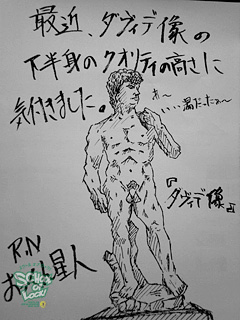 最近、ダヴィデ像の
下半身のクオリティの高さに
気付きました。
『ダヴィデ像』
R.N
星人
SCHOOL OF LOCK!